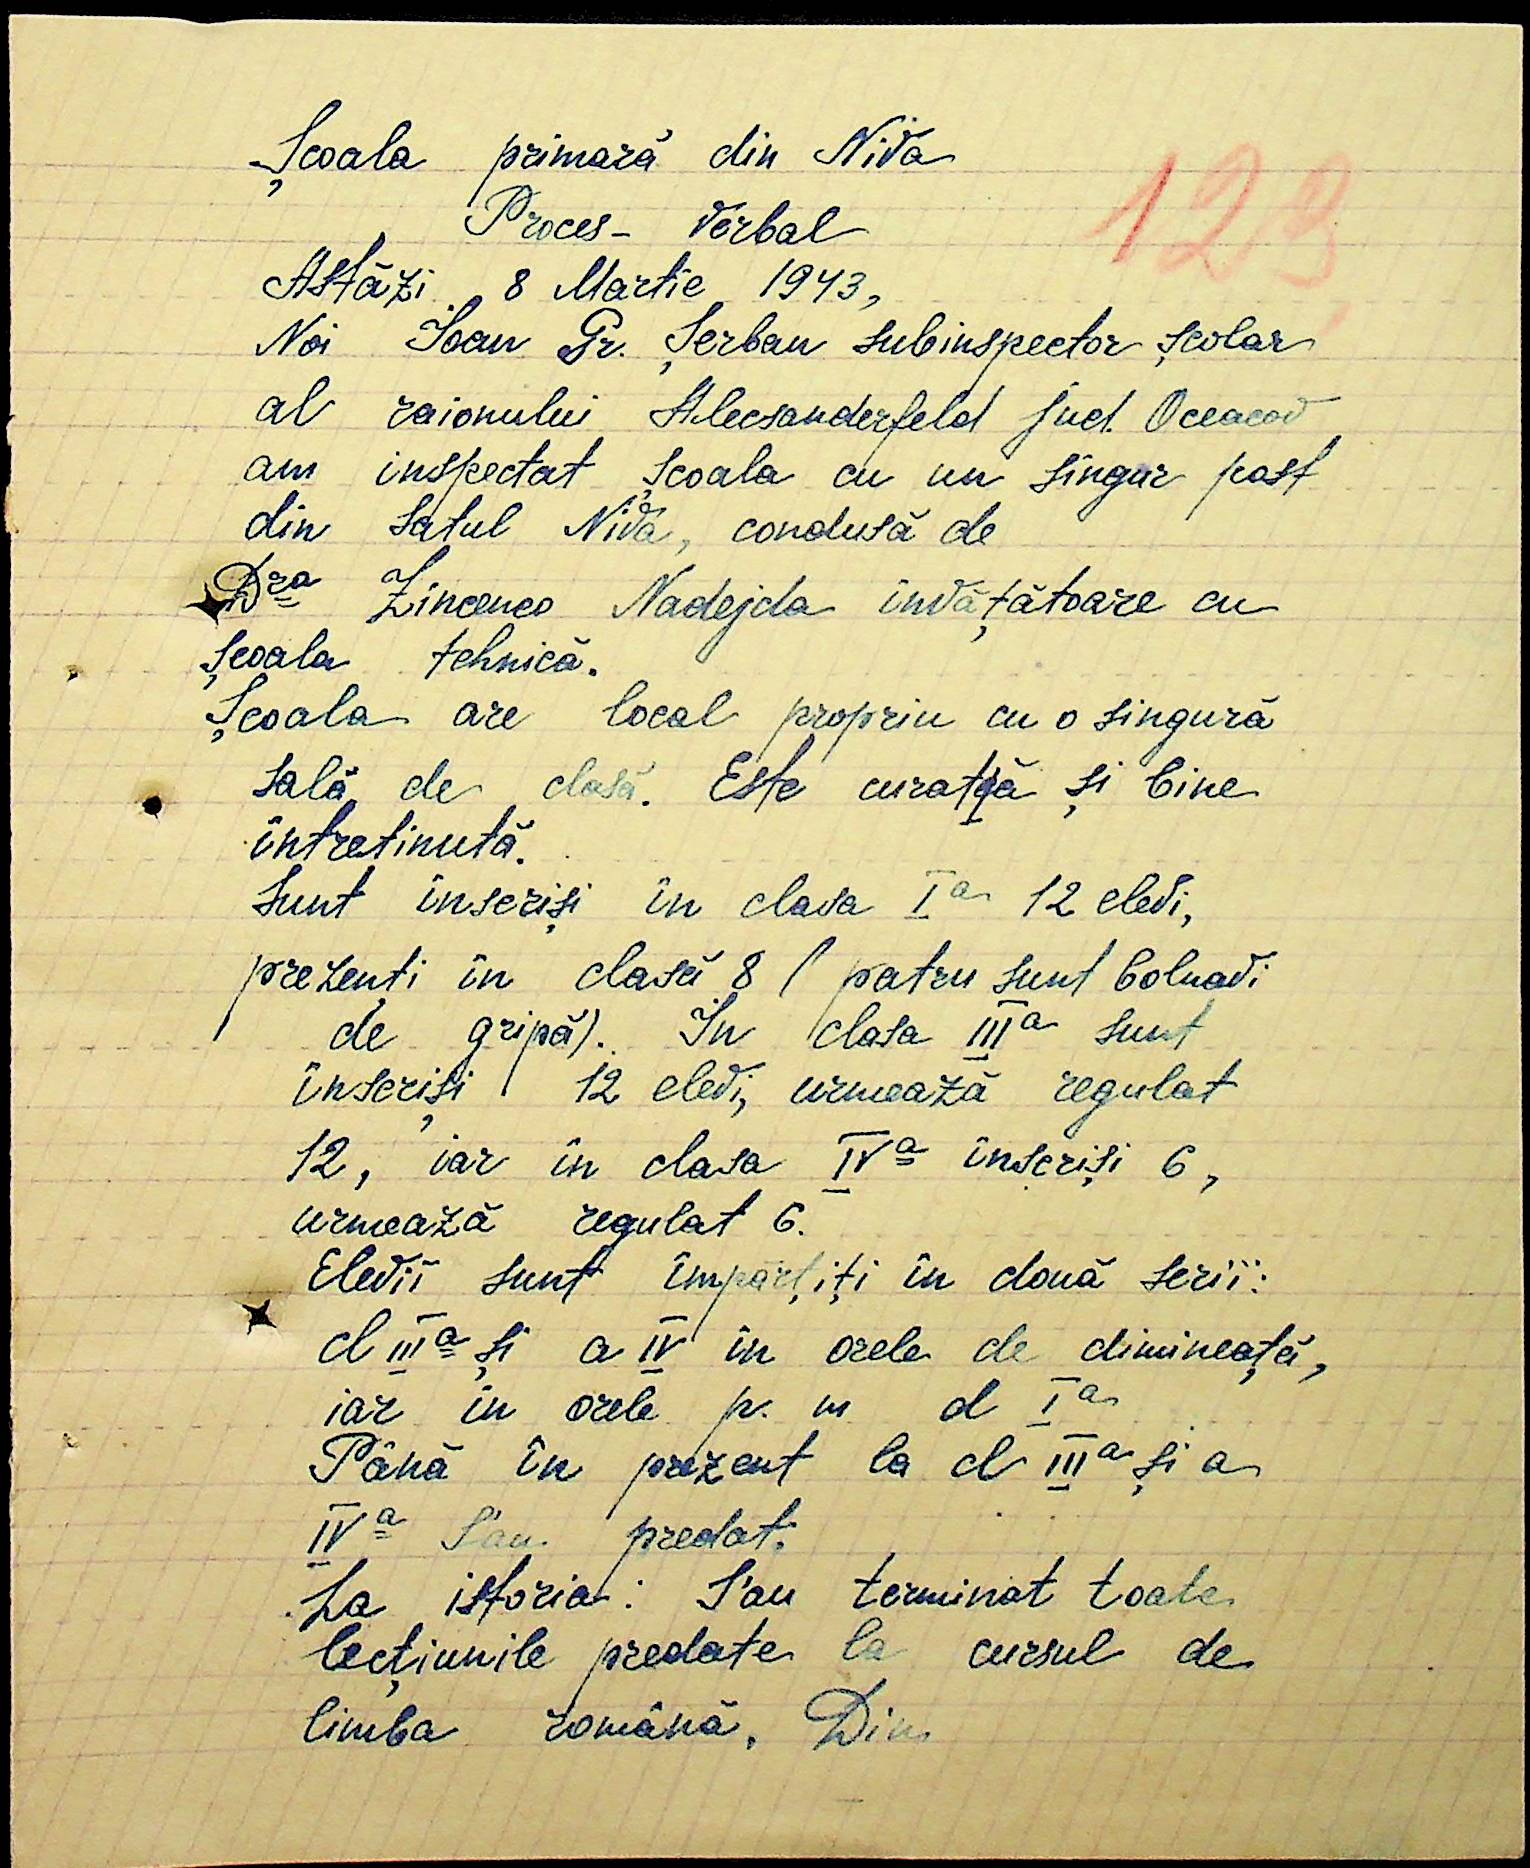 Școala primară din Niva
123
Proces- Verbal
Astăzi 8 Martie 1943,
Noi Ioan Gr. Șerban subinspector școlar
al raionului Alecsanderfeld jud. Oceacov
am inspectat școala cu un singur post
din satul Niva, condusă de
Dra Zincenco Nadejda învățătoare cu
școala tehnică.
Școala are local propriu cu o singură
sală de clasă. Este curată și bine
întretinută.
Sunt înscriși în clasa Ia 12 elevi,
prezenți în clasă 8 (patru sunt bolnavi
de gripă). In clasa IIIa sunt
înscriși 12 elevi, urmează regulat
12, iar în clasa IVa înscriși 6,
urmează regulat 6.
Elevii sunt împărțiți în două serii:
cl IIIa și a IV în orele de dimineață,
iar în orele p. m cl Ia
Până în prezent la cl IIIa și a
IVa S'au predat:
La istoria: S'au terminat toate
lecțiunile predate la cursul de
limba română. Din